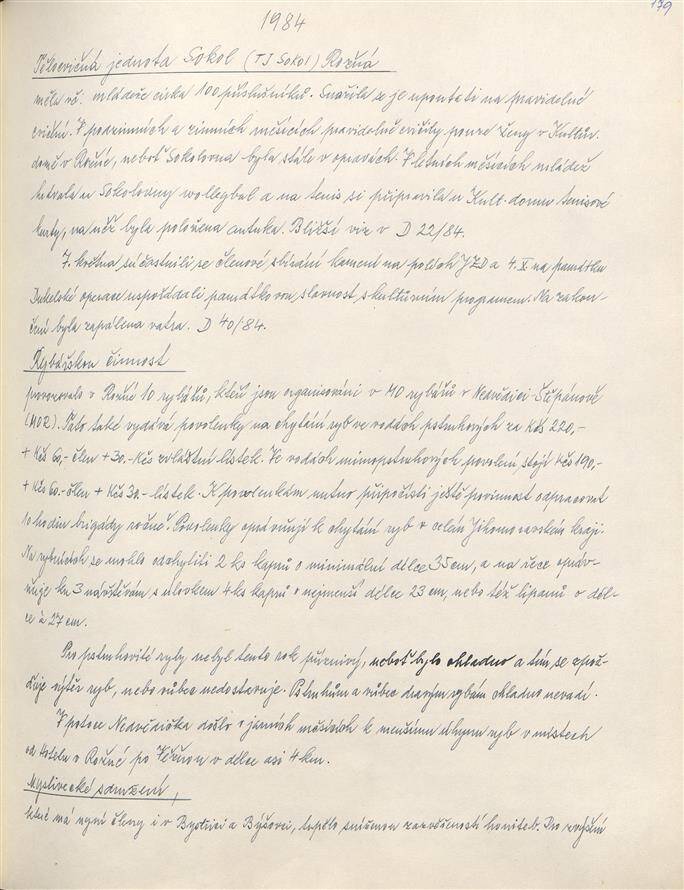 179
1984
Tělocvičná jednota Sokol (TJ Sokol) Rožná
měla vč. mládeže cirka 100 příslušníků. Snažila se je upoutati na pravidelné
cvičení. V podzimních a zimních měsících pravidelně cvičily pouze ženy v Kultur.
domě v Rožné, neboť Sokolovna byla stále v opravách. V letních měsících mládež
hrála u Sokolovny wollegbal a na tenis si připravila u Kult. domu tenisové
kurty, na něž byla položena antuka. Bližší viz v D 22/84.
7. května súčastnili se členové sbírání kamení na polích JZD a 4. X na památku
Dukelské operace uspořádali památkovou slavnost s kulturním programem. Na zakon-
čení byla zapálena vatra. D 40/84.
Rybářskou činnost
provozovalo v Rožné 10 rybářů, kteří jsou organisováni v MO rybářů v Nedvědici-Štěpánově
(MO2). Tato také vydává povolenky na chytání ryb ve vodách pstruhových za Kčs 220,-
+ Kčs 60,- člen + 30,- Kčs zvláštní lístek. Ve vodách mimopstruhových povolení stojí Kčs 190,-
+ Kčs 60,- člen + Kčs 30,- lístek. K povolenkám nutno připočísti ještě povinnost odpracovat
10 hodin brigády ročně. Povolenky opravňují k chytání ryb v celém Jihomoravském kraji.
Na rybnících se mohlo odchytiti 2 ks kaprů o minimální délce 35 cm, a na řece oprav-
ňuje ku 3 návštěvám s úlovkem 4 ks kaprů o nejmenší délce 23 cm, nebo též lipanů o dél-
ce à 27 cm.
Pro pstruhovité ryby nebyl tento rok příznivý, neboť bylo chladno a tím se zpož-
ďuje výtěr ryb, nebo vůbec nedostavuje. Pstruhům a vůbec dravým rybám chladno nevadí.
V potoce Nedvědička došlo v jarních měsících k menšímu úhynu ryb v místech
od Hotelu v Rožné po Věžnou v délce asi 4 km.
Myslivecké sdružení,
které má nyní členy i v Bystřici a Býšovci, trpělo sníženou zazvěřeností honiteb. Pro zvýšení